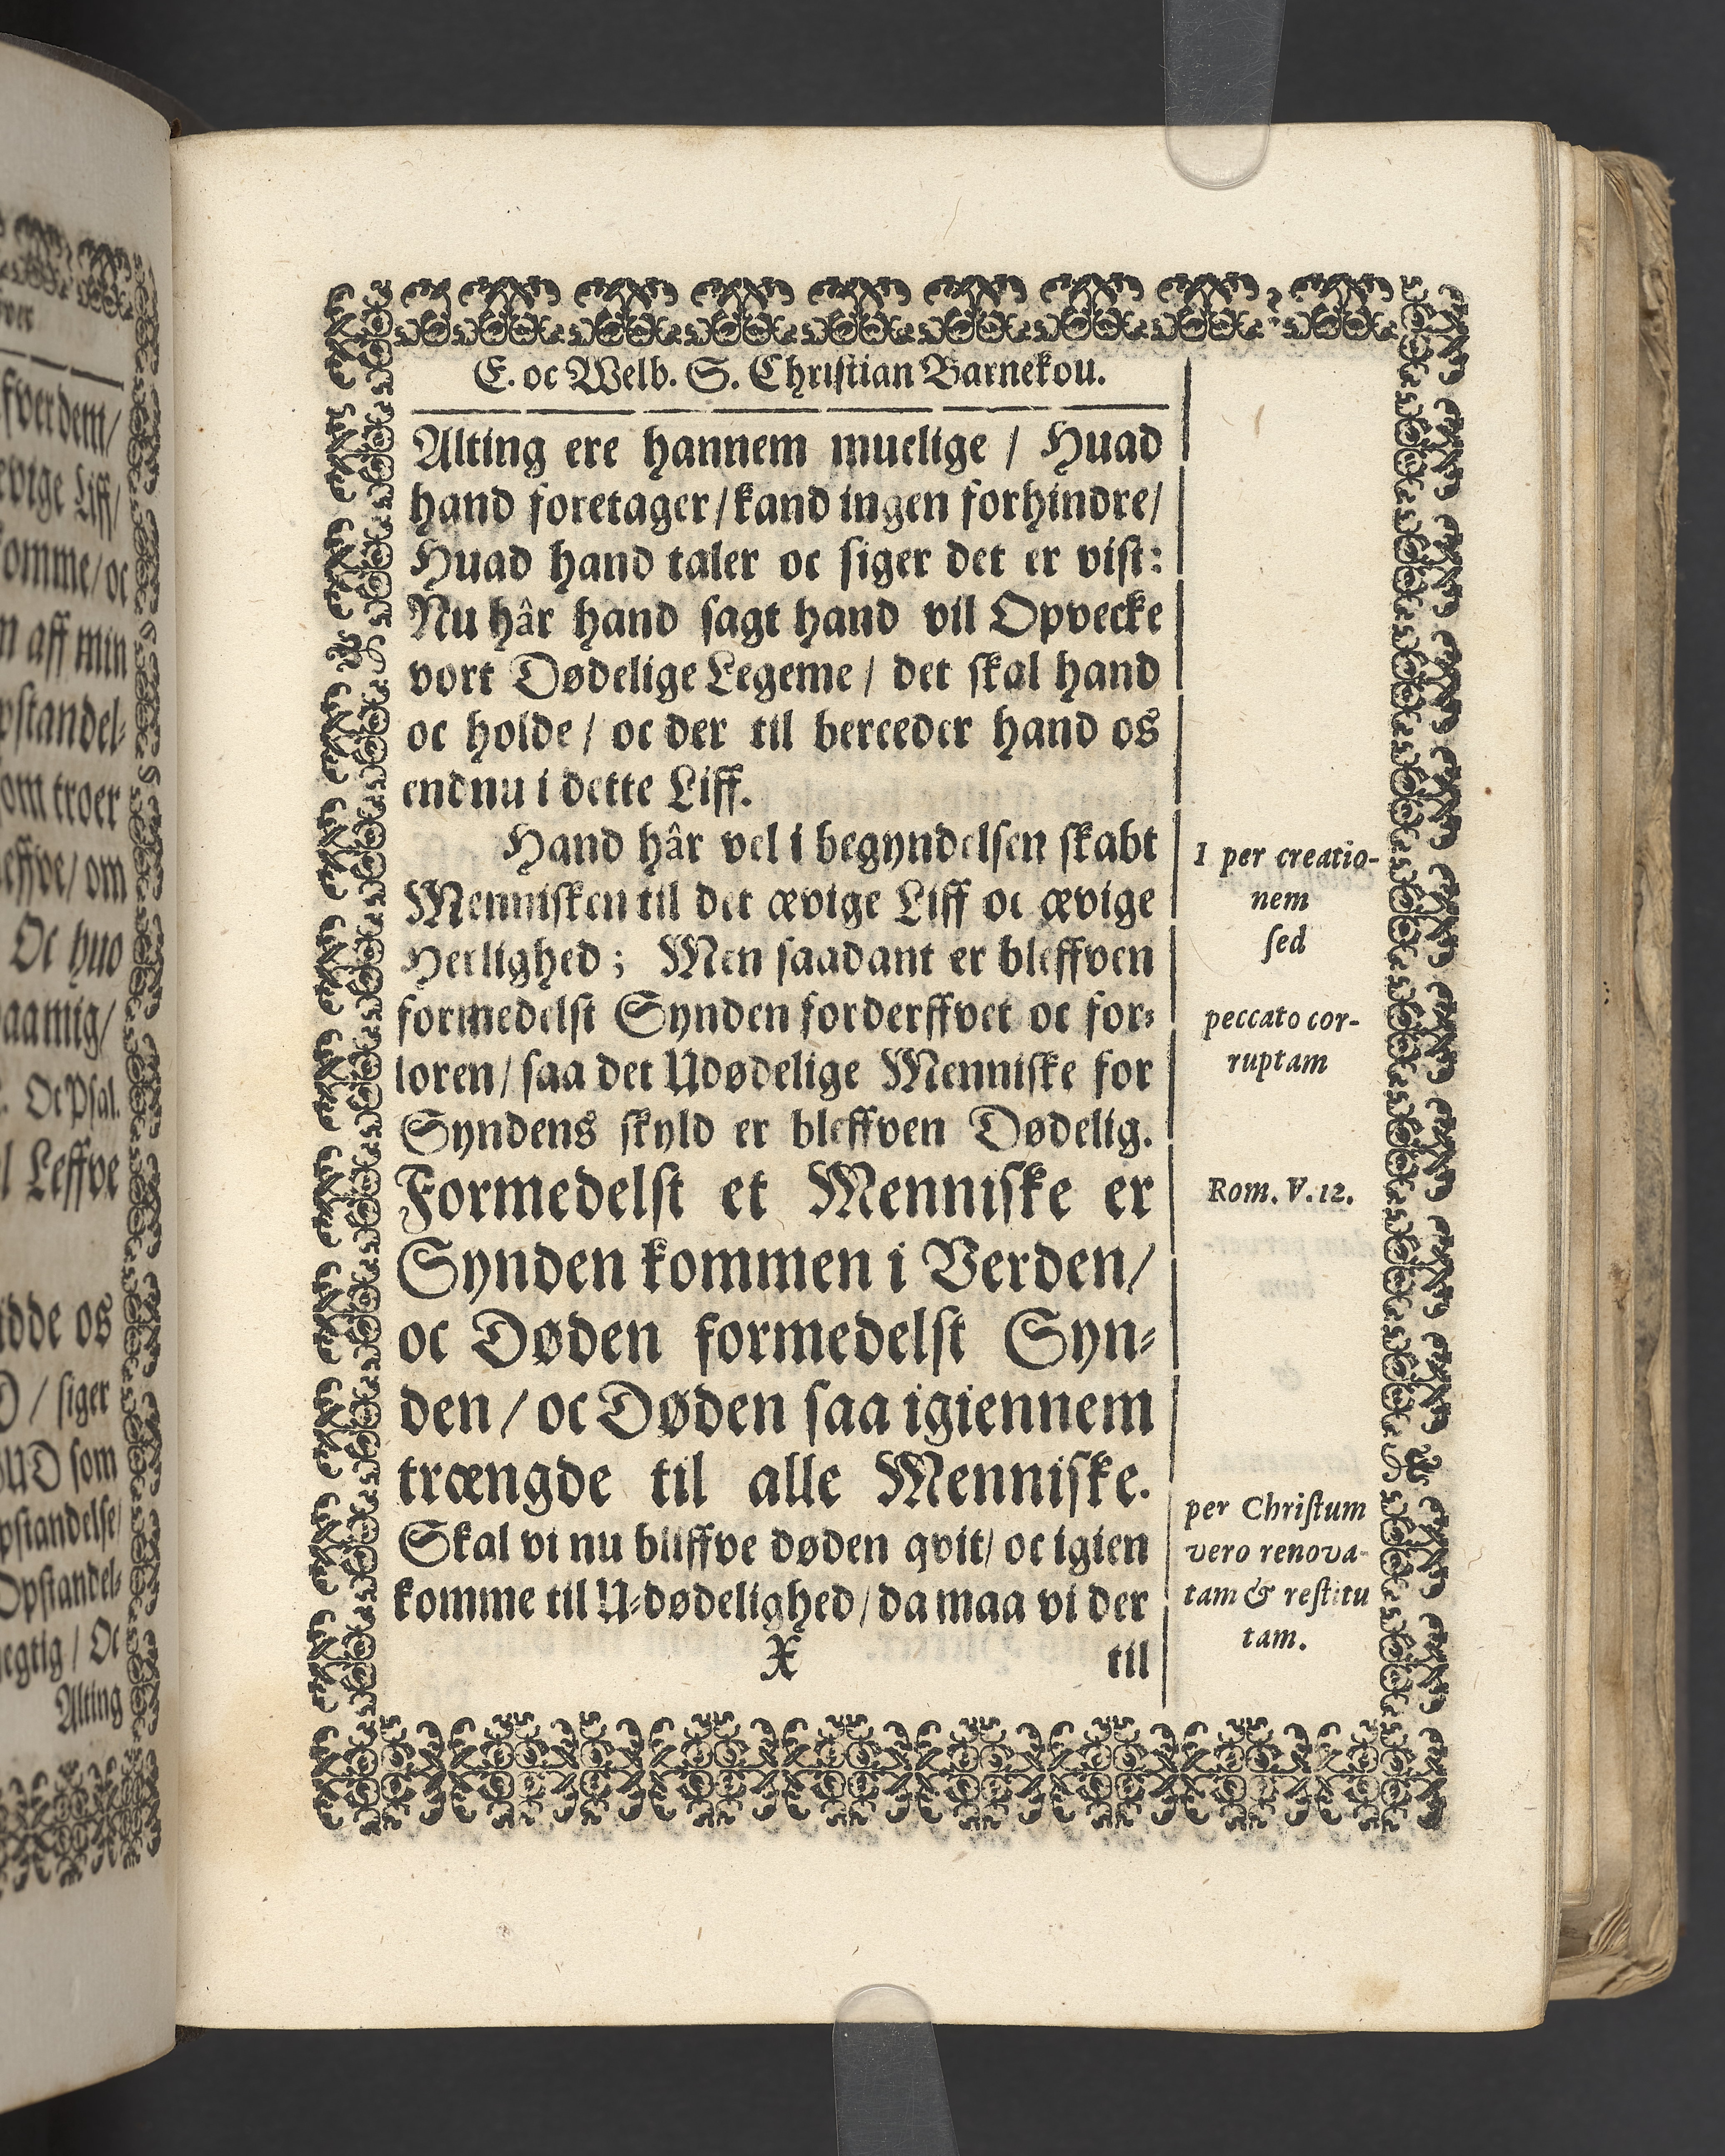 E. oc Welb. S. Christian Barnekou.
Alting ere hannem muelige / Huad
hand foretager / kand ingen forhindre /
Huad hand taler oc siger det er vist:
Nu hâr hand sagt hand vil Opvecke
vort Dødelige Legeme / det skal hand
oc holde / oc der til bereeder hand os
endnu i dette Liff.
Hand hâr vel i begyndelsen skabt
Mennisken til det ævige Liff oc ævige
Herlighed; Men saadant er bleffven
formedelst Synden forderffvet oc for-
loren / saa det Udødelige Menniske for
Syndens skyld er bleffven Dødelig.
Formedelst et Menniske er
Synden kommen i Verden /
oc Døden formedelst Syn-
den / oc Døden saa igiennem
trængde til alle Menniske.
Skal vi nu bliffve døden qvit / oc igien
komme til U-dødelighed / da maa vi der
X til
1 per creatio-
nem
sed
peccato cor-
ruptam
Rom. V. 12.
per Christum
vero renova-
tam & restitu
tam.
fver dem /
evige Liff /
komme / oc
n aff min
pstandel-
som troer
leffve / om
Oc huo
paa mig /
. Oc Psal.
l Leffve
dde os
D / siger
GUD som
pstandelse /
Opstandel-
egtig / Oc
Alting